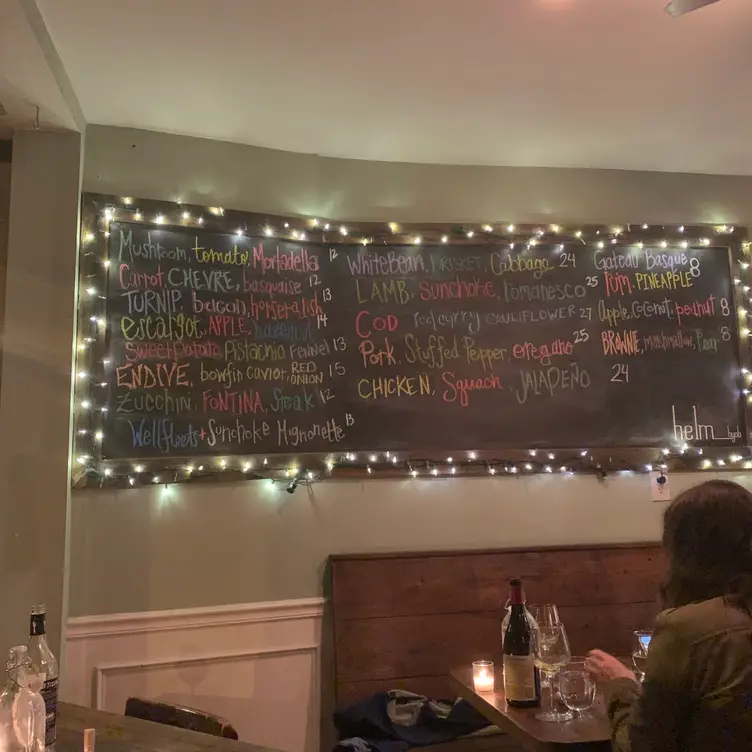 Mushroom, tomato, Mortadella 12
Carrot, CHEVRE, basquaise 12
TURNIP, bacon, horseradish 13
escargot, APPLE, hazelnut 14
Sweet Potato, Pistachio Fennel 13
ENDIVE, bowfin caviar, RED ONION 15
Zucchini, FONTINA, Steak 12
Wellfleets + Sunchoke Mignonette 13
White Bean, BRISKET, Cabbage 24
LAMB, Sunchoke, romanesco 25
COD red curry CAULIFLOWER 27
Pork, Stuffed Pepper, oregano 25
CHICKEN, Squash, JALAPEÑO 24
Gateau Basque
Rum, PINEAPPLE 8
Apple, Coconut, peanut 8
BROWNIE, marshmallow, Pear 8
helm byob